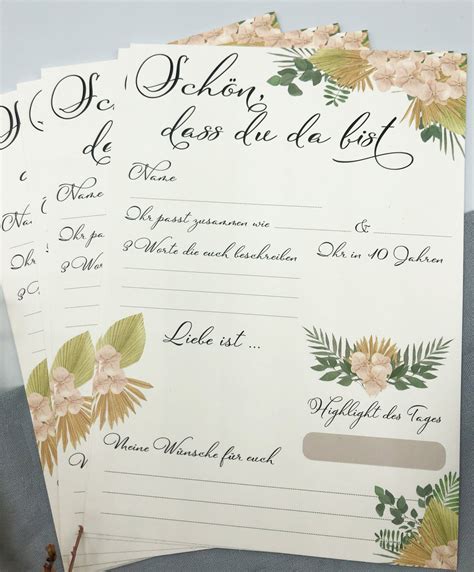 Schön,
dass du da bist
Name
Ihr passt zusammen wie & 
3 Worte die euch beschreiben
Ihr in 10 Jahren
Liebe ist ...
Highlight des Tages
Meine Wünsche für euch